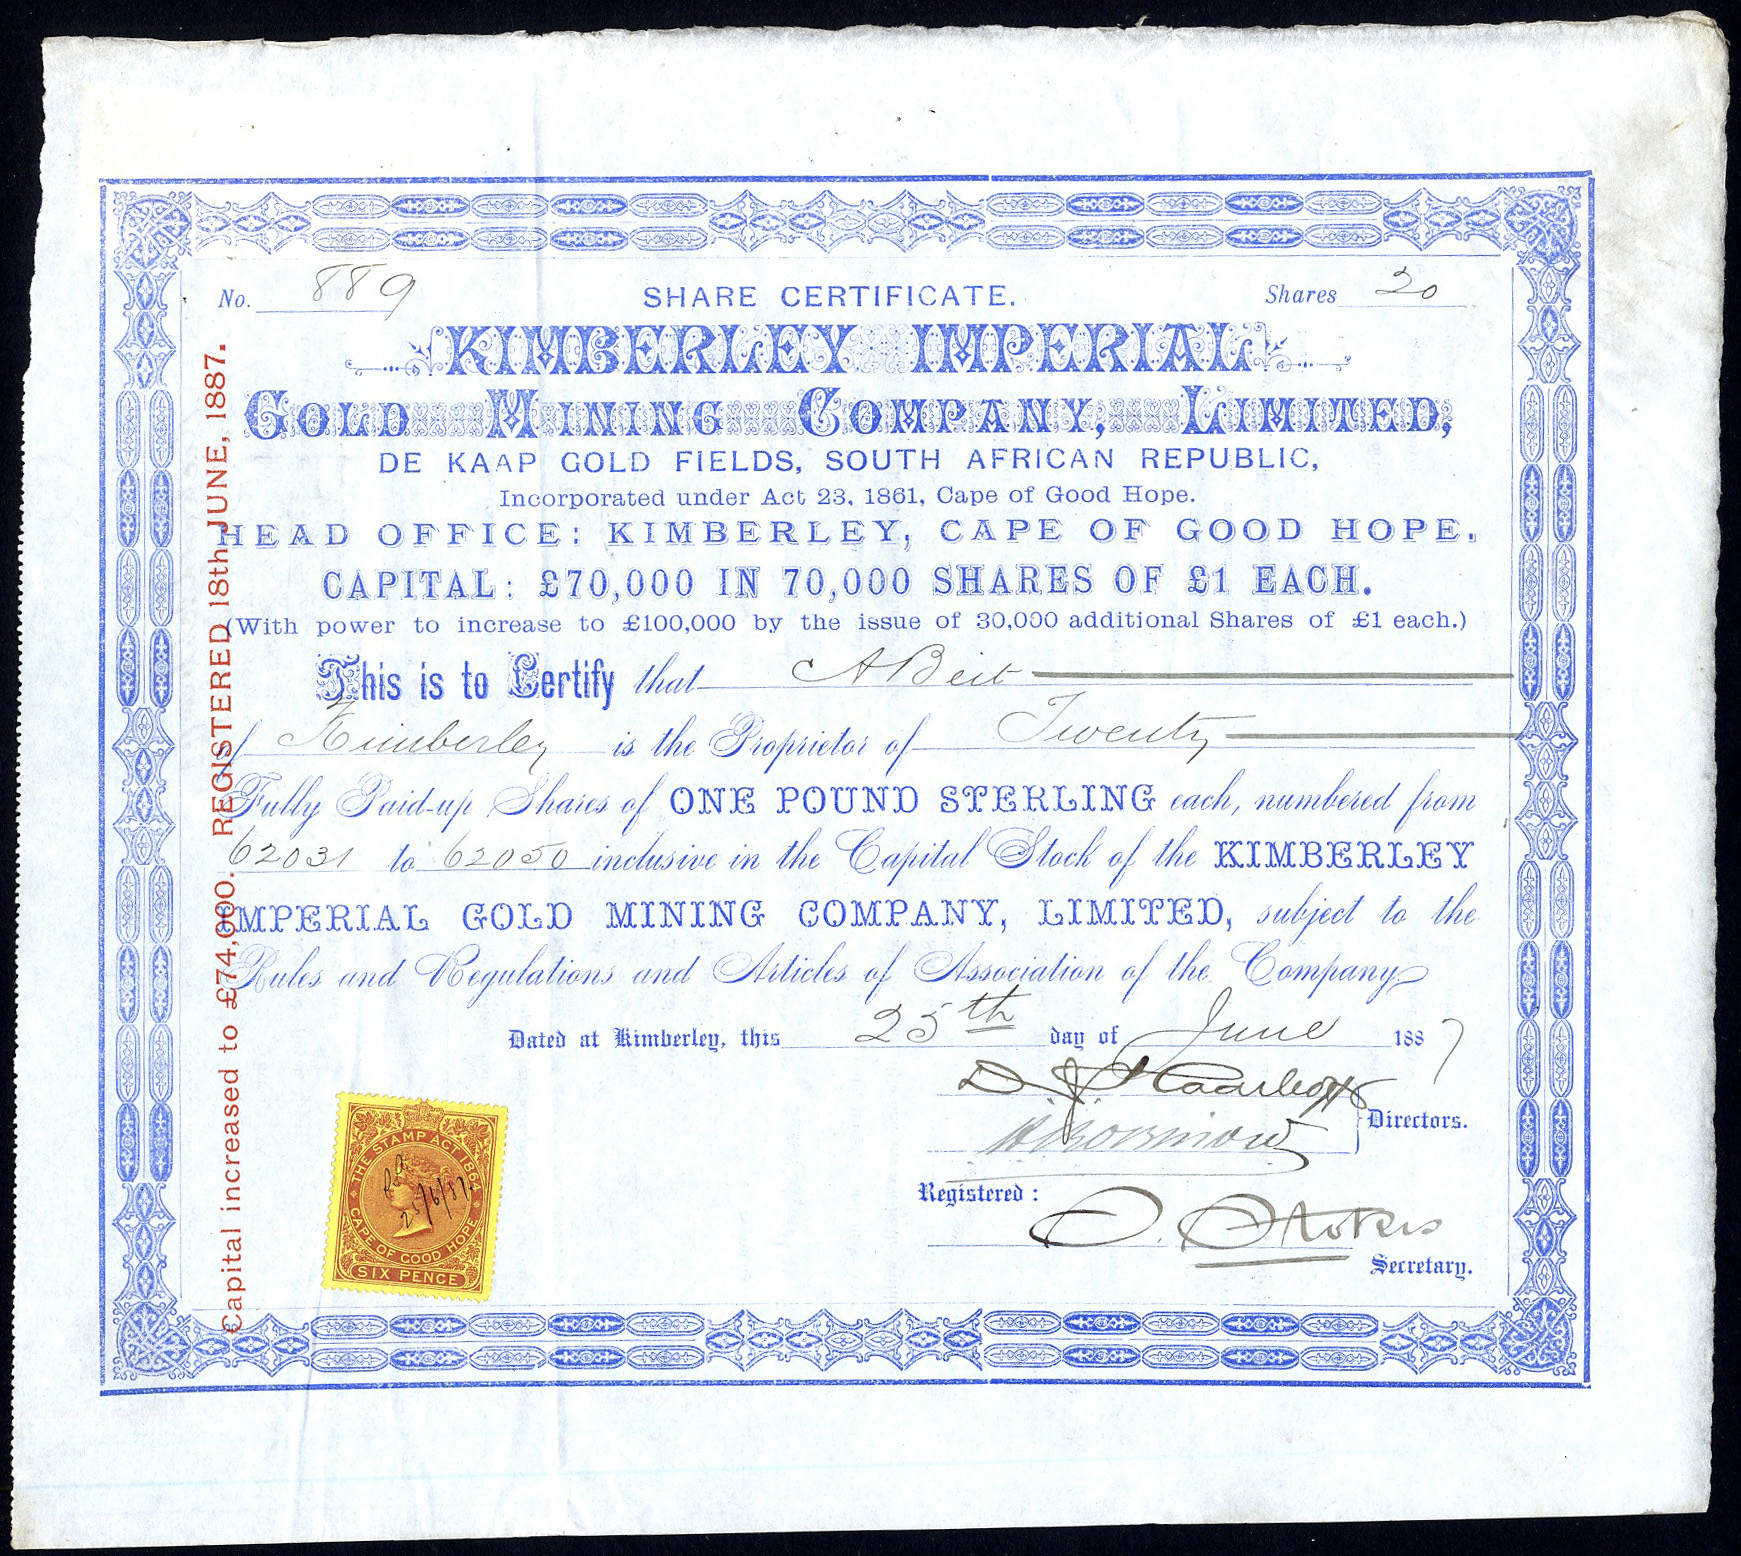 No. 889 SHARE CERTIFICATE. Shares 20
KIMBERLEY IMPERIAL
GOLD MINING COMPANY, LIMITED,
DE KAAP GOLD FIELDS, SOUTH AFRICAN REPUBLIC,
Incorporated under Act 23, 1861, Cape of Good Hope.
HEAD OFFICE: KIMBERLEY, CAPE OF GOOD HOPE.
CAPITAL: £70,000 IN 70,000 SHARES OF £1 EACH.
(With power to increase to £100,000 by the issue of 30,000 additional Shares of £1 each.)
This is to Certify that A Beit
of Kimberley is the Proprietor of Twenty
Fully Paid-up Shares of ONE POUND STERLING each, numbered from
62031 to 62050 inclusive in the Capital Stock of the KIMBERLEY
IMPERIAL GOLD MINING COMPANY, LIMITED, subject to the
Rules and Regulations and Articles of Association of the Company
Dated at Kimberley, this 25th day of June 1887
D. J. Haarhoff
Directors.
Registered:
Stokes
Secretary.
Capital increased to £74,000. REGISTERED 18th JUNE, 1887.
THE STAMP ACT 1864
25/6/87
CAPE OF GOOD HOPE
SIX PENCE